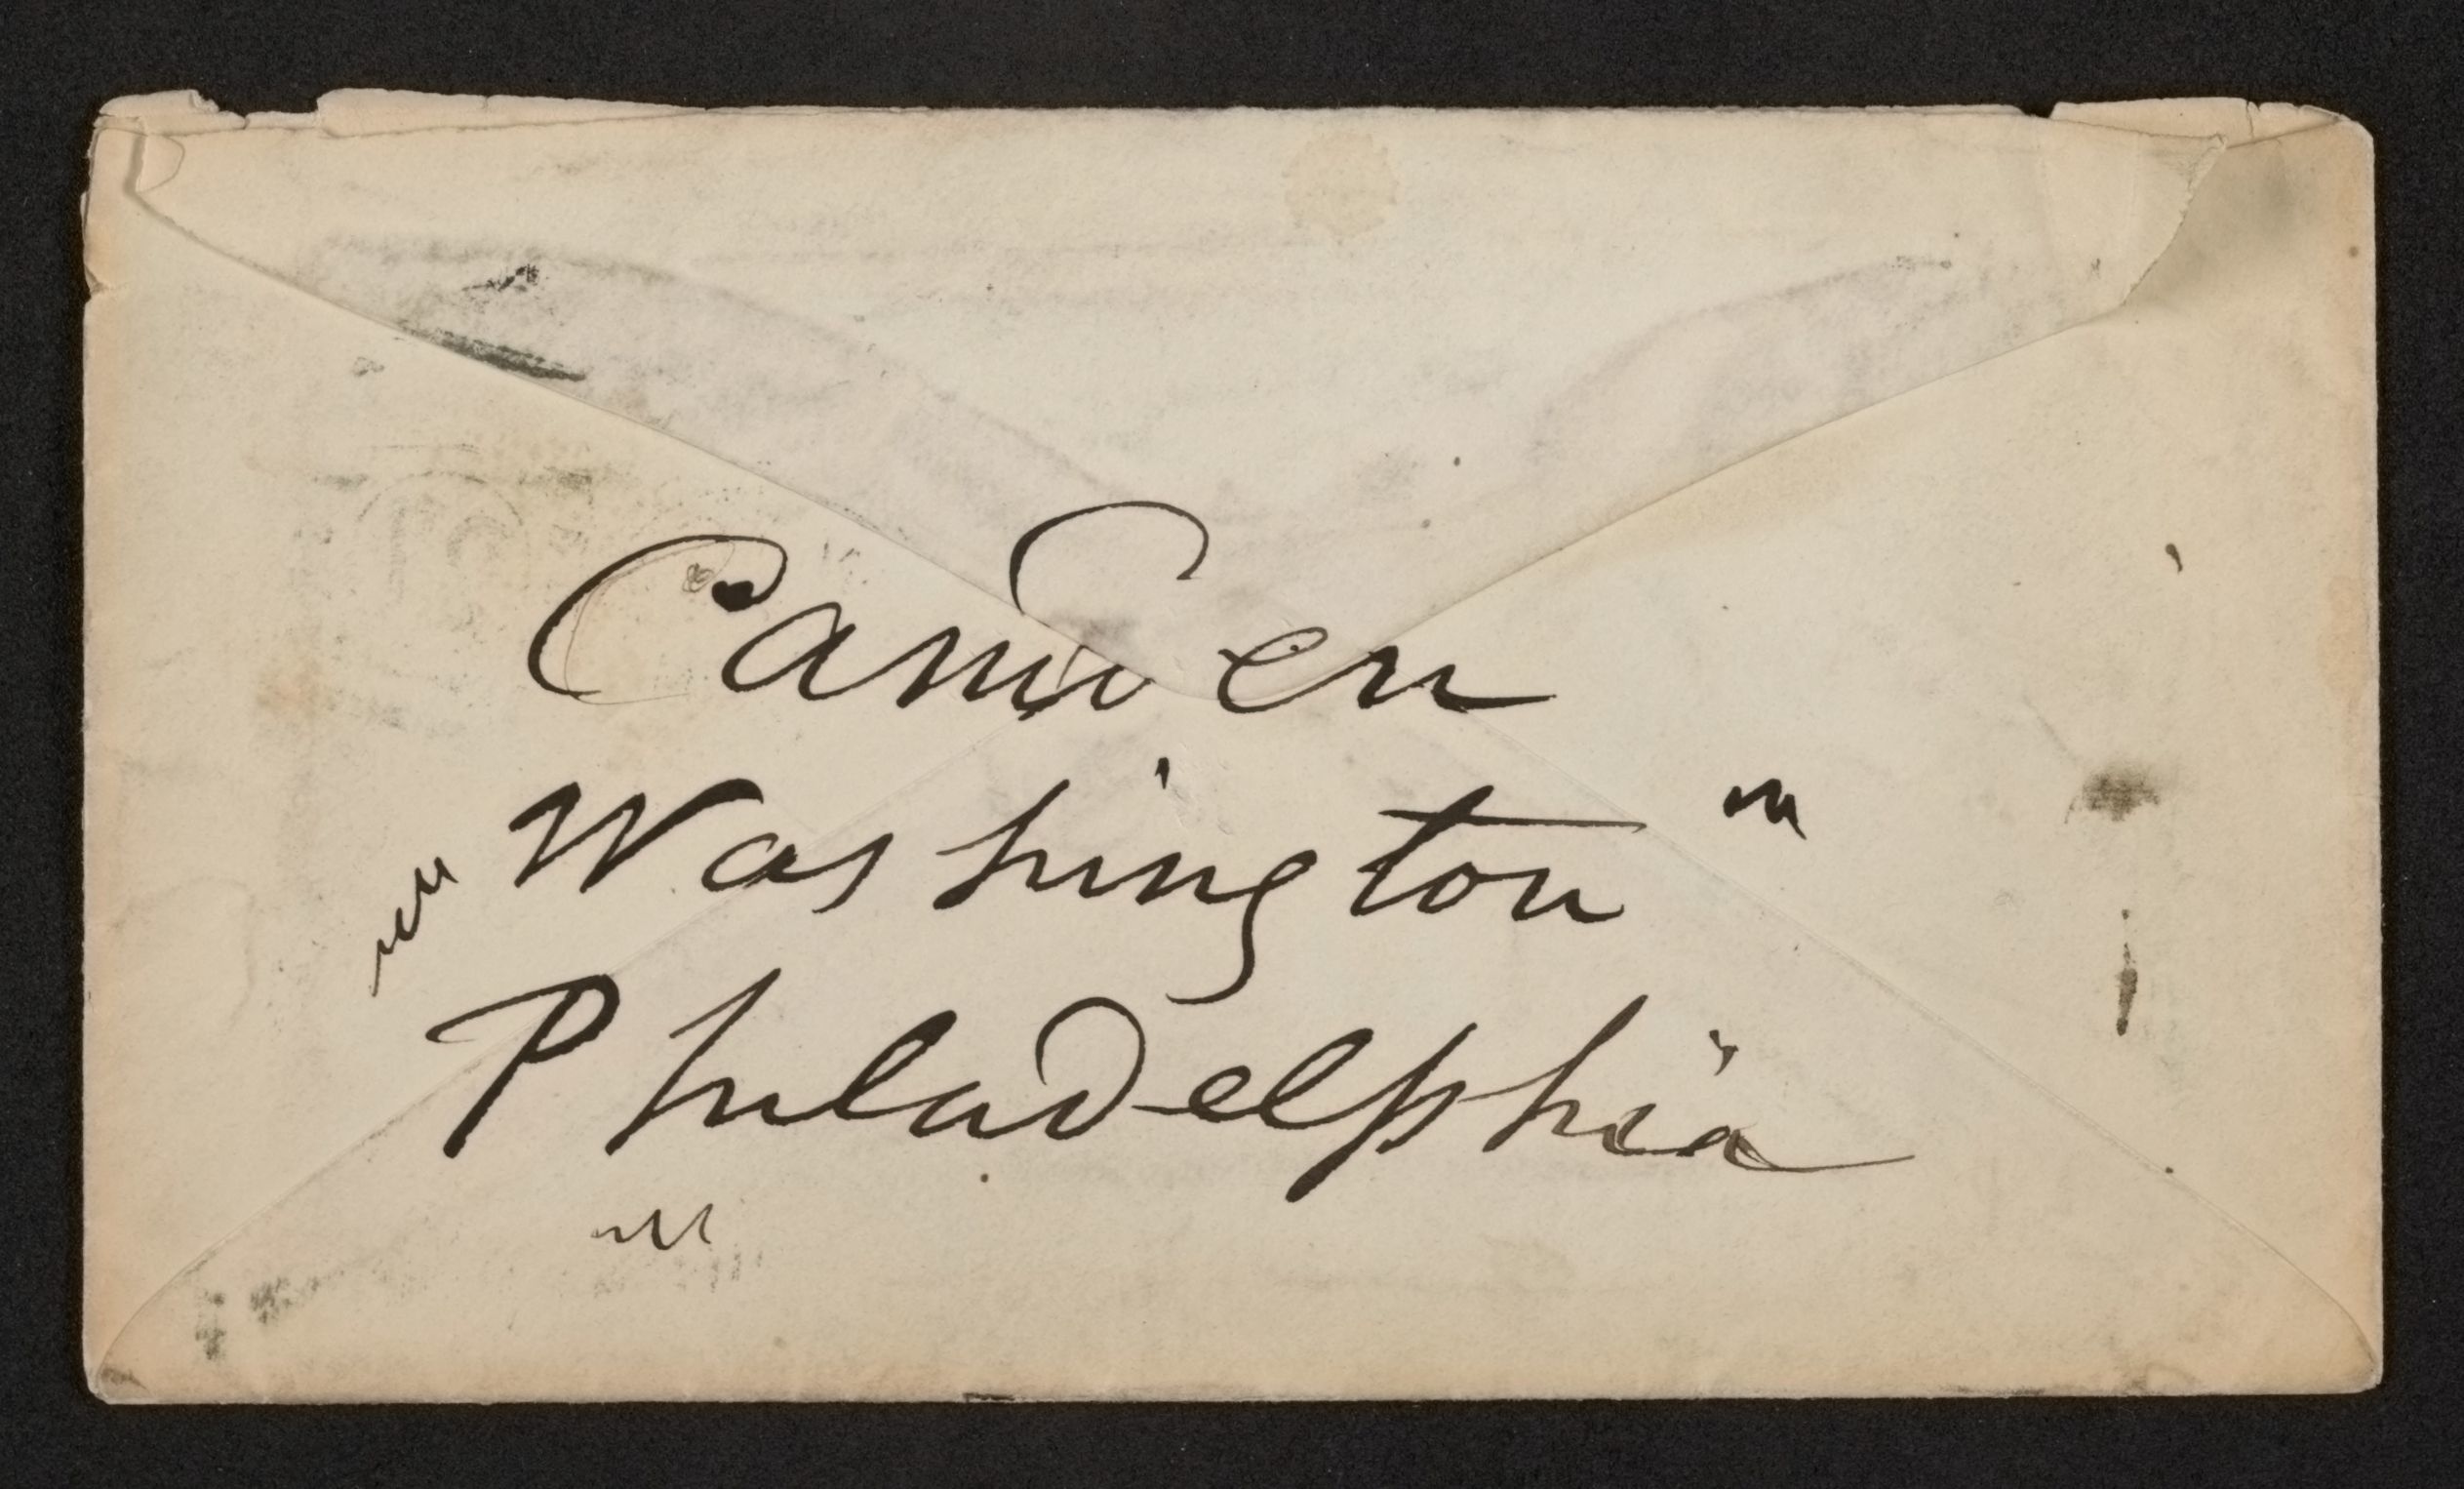 Camden
Washington
Philadelphia